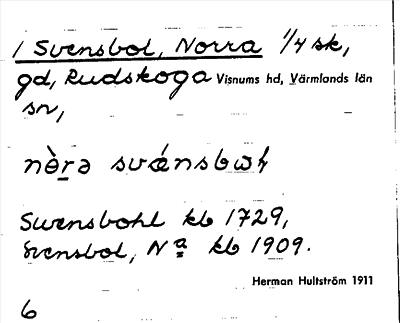 1 Svensbol, Norra 1/4 sk,
gd, Rudskoga Visnums hd, Värmlands län
sn,
nὼrə svǽnsbωɫ
Swensbohl kb 1729,
Svensbol, Nª kb 1909.
Herman Hultström 1911
6